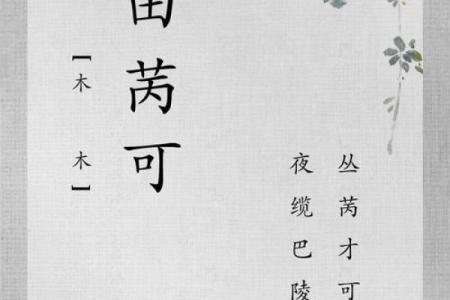 【木 木】
芮可
夜缆巴陵
丛芮才可